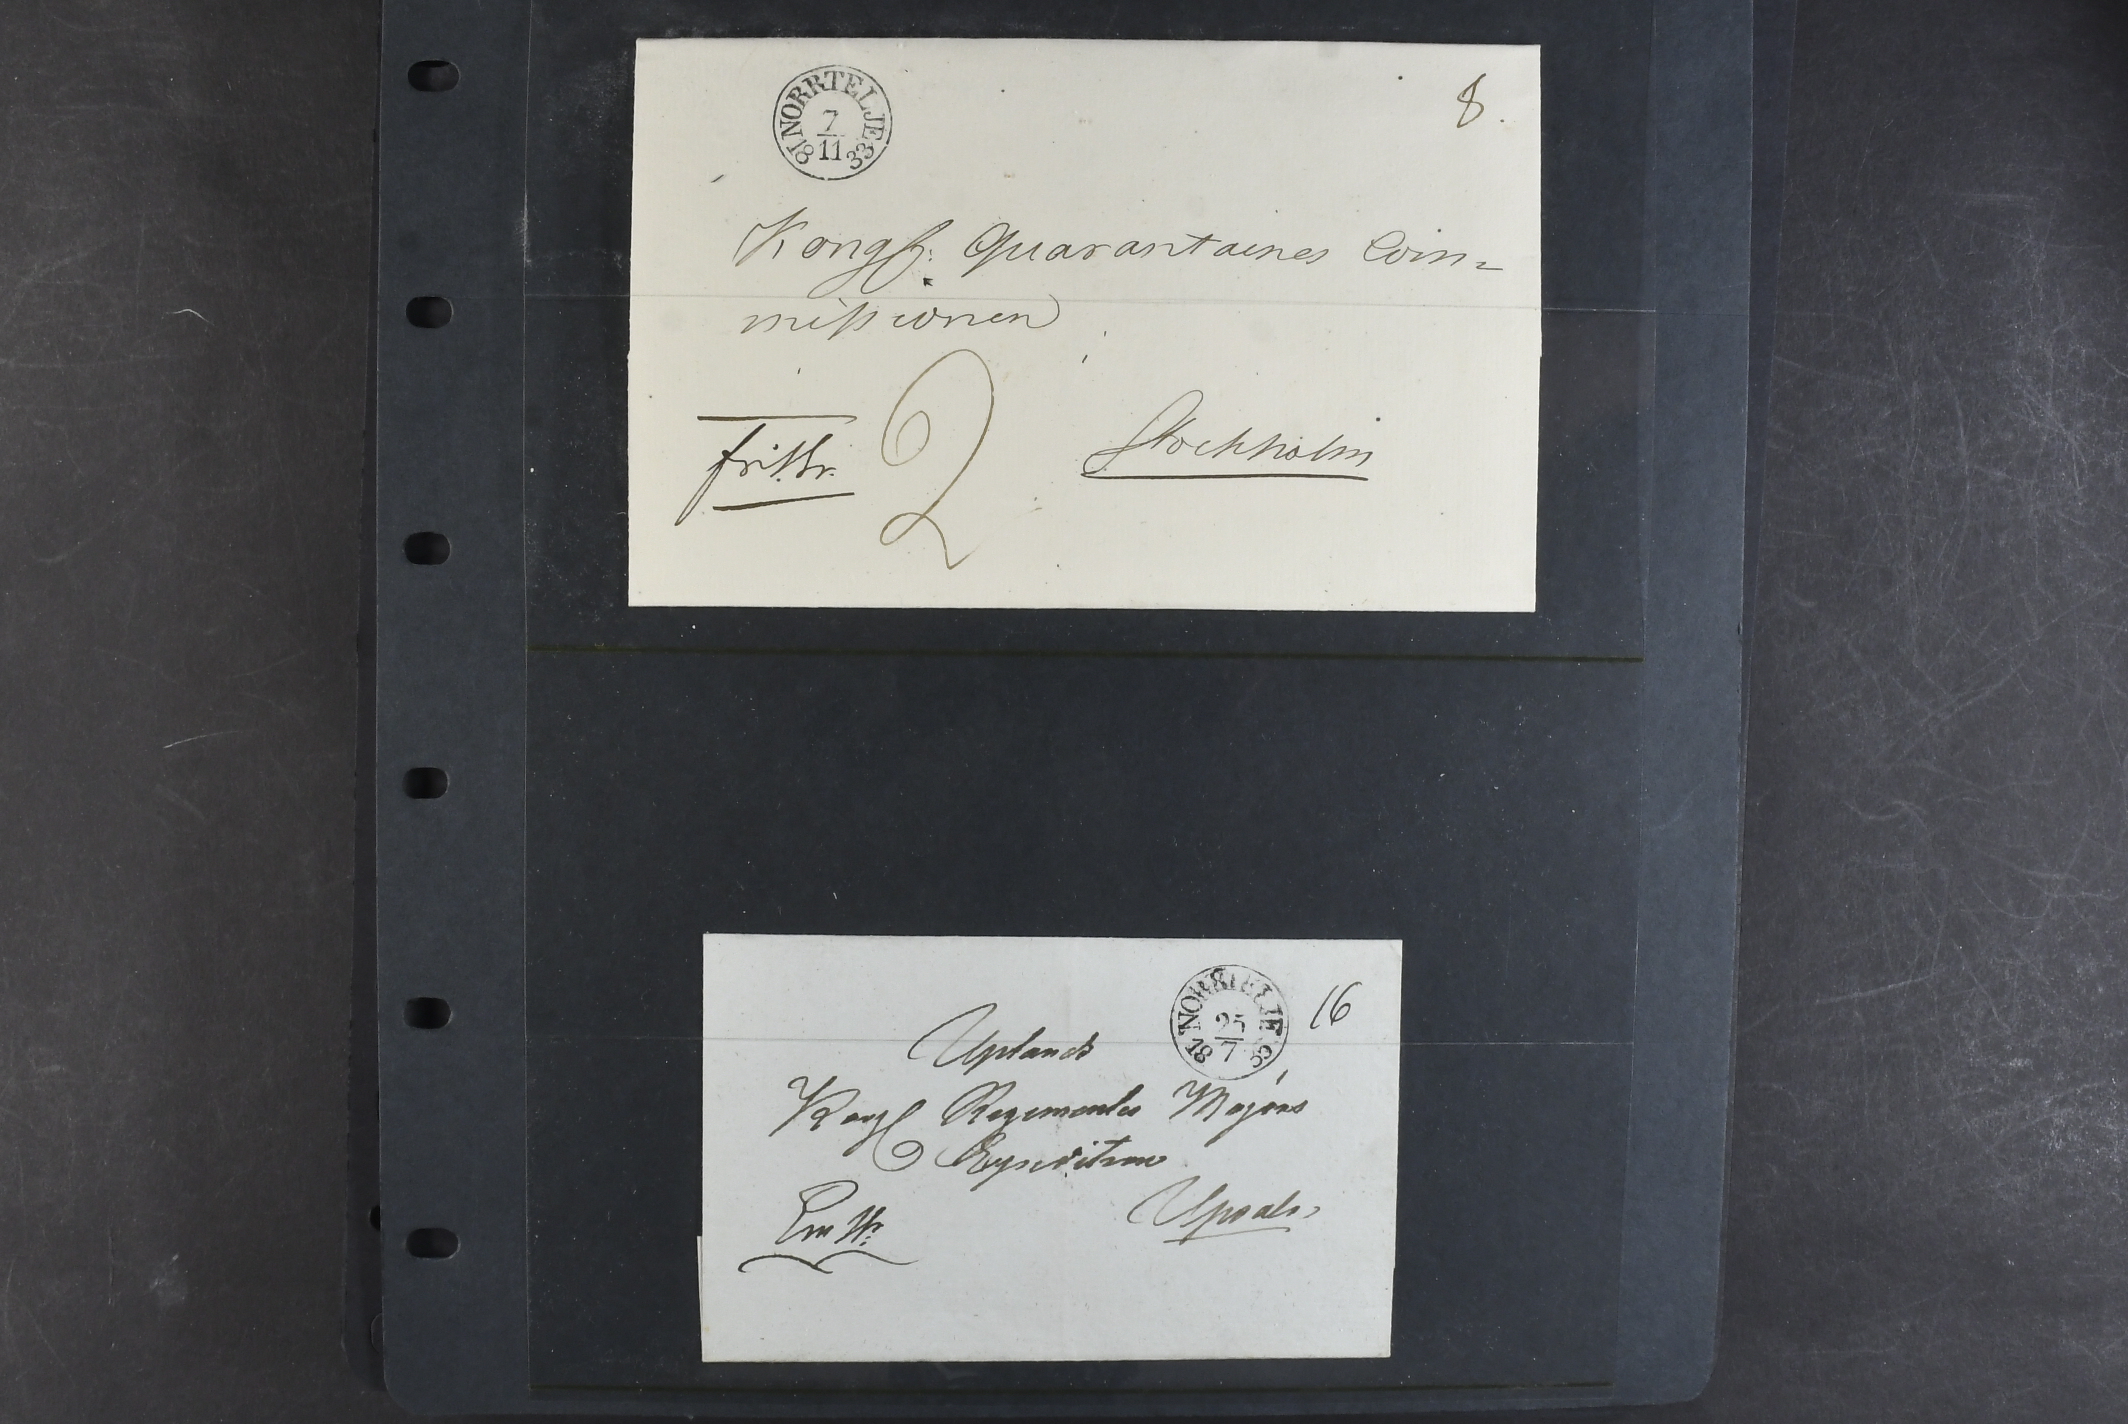 NORRTELJE
7
11
18 33
8.
Kongl: Quarantaines Com=
missionen
fribr.
2
Stockholm
NORRTELJE
25
7
18
16
Uplands
Kongl Regements Majors
Expedition
Upsala